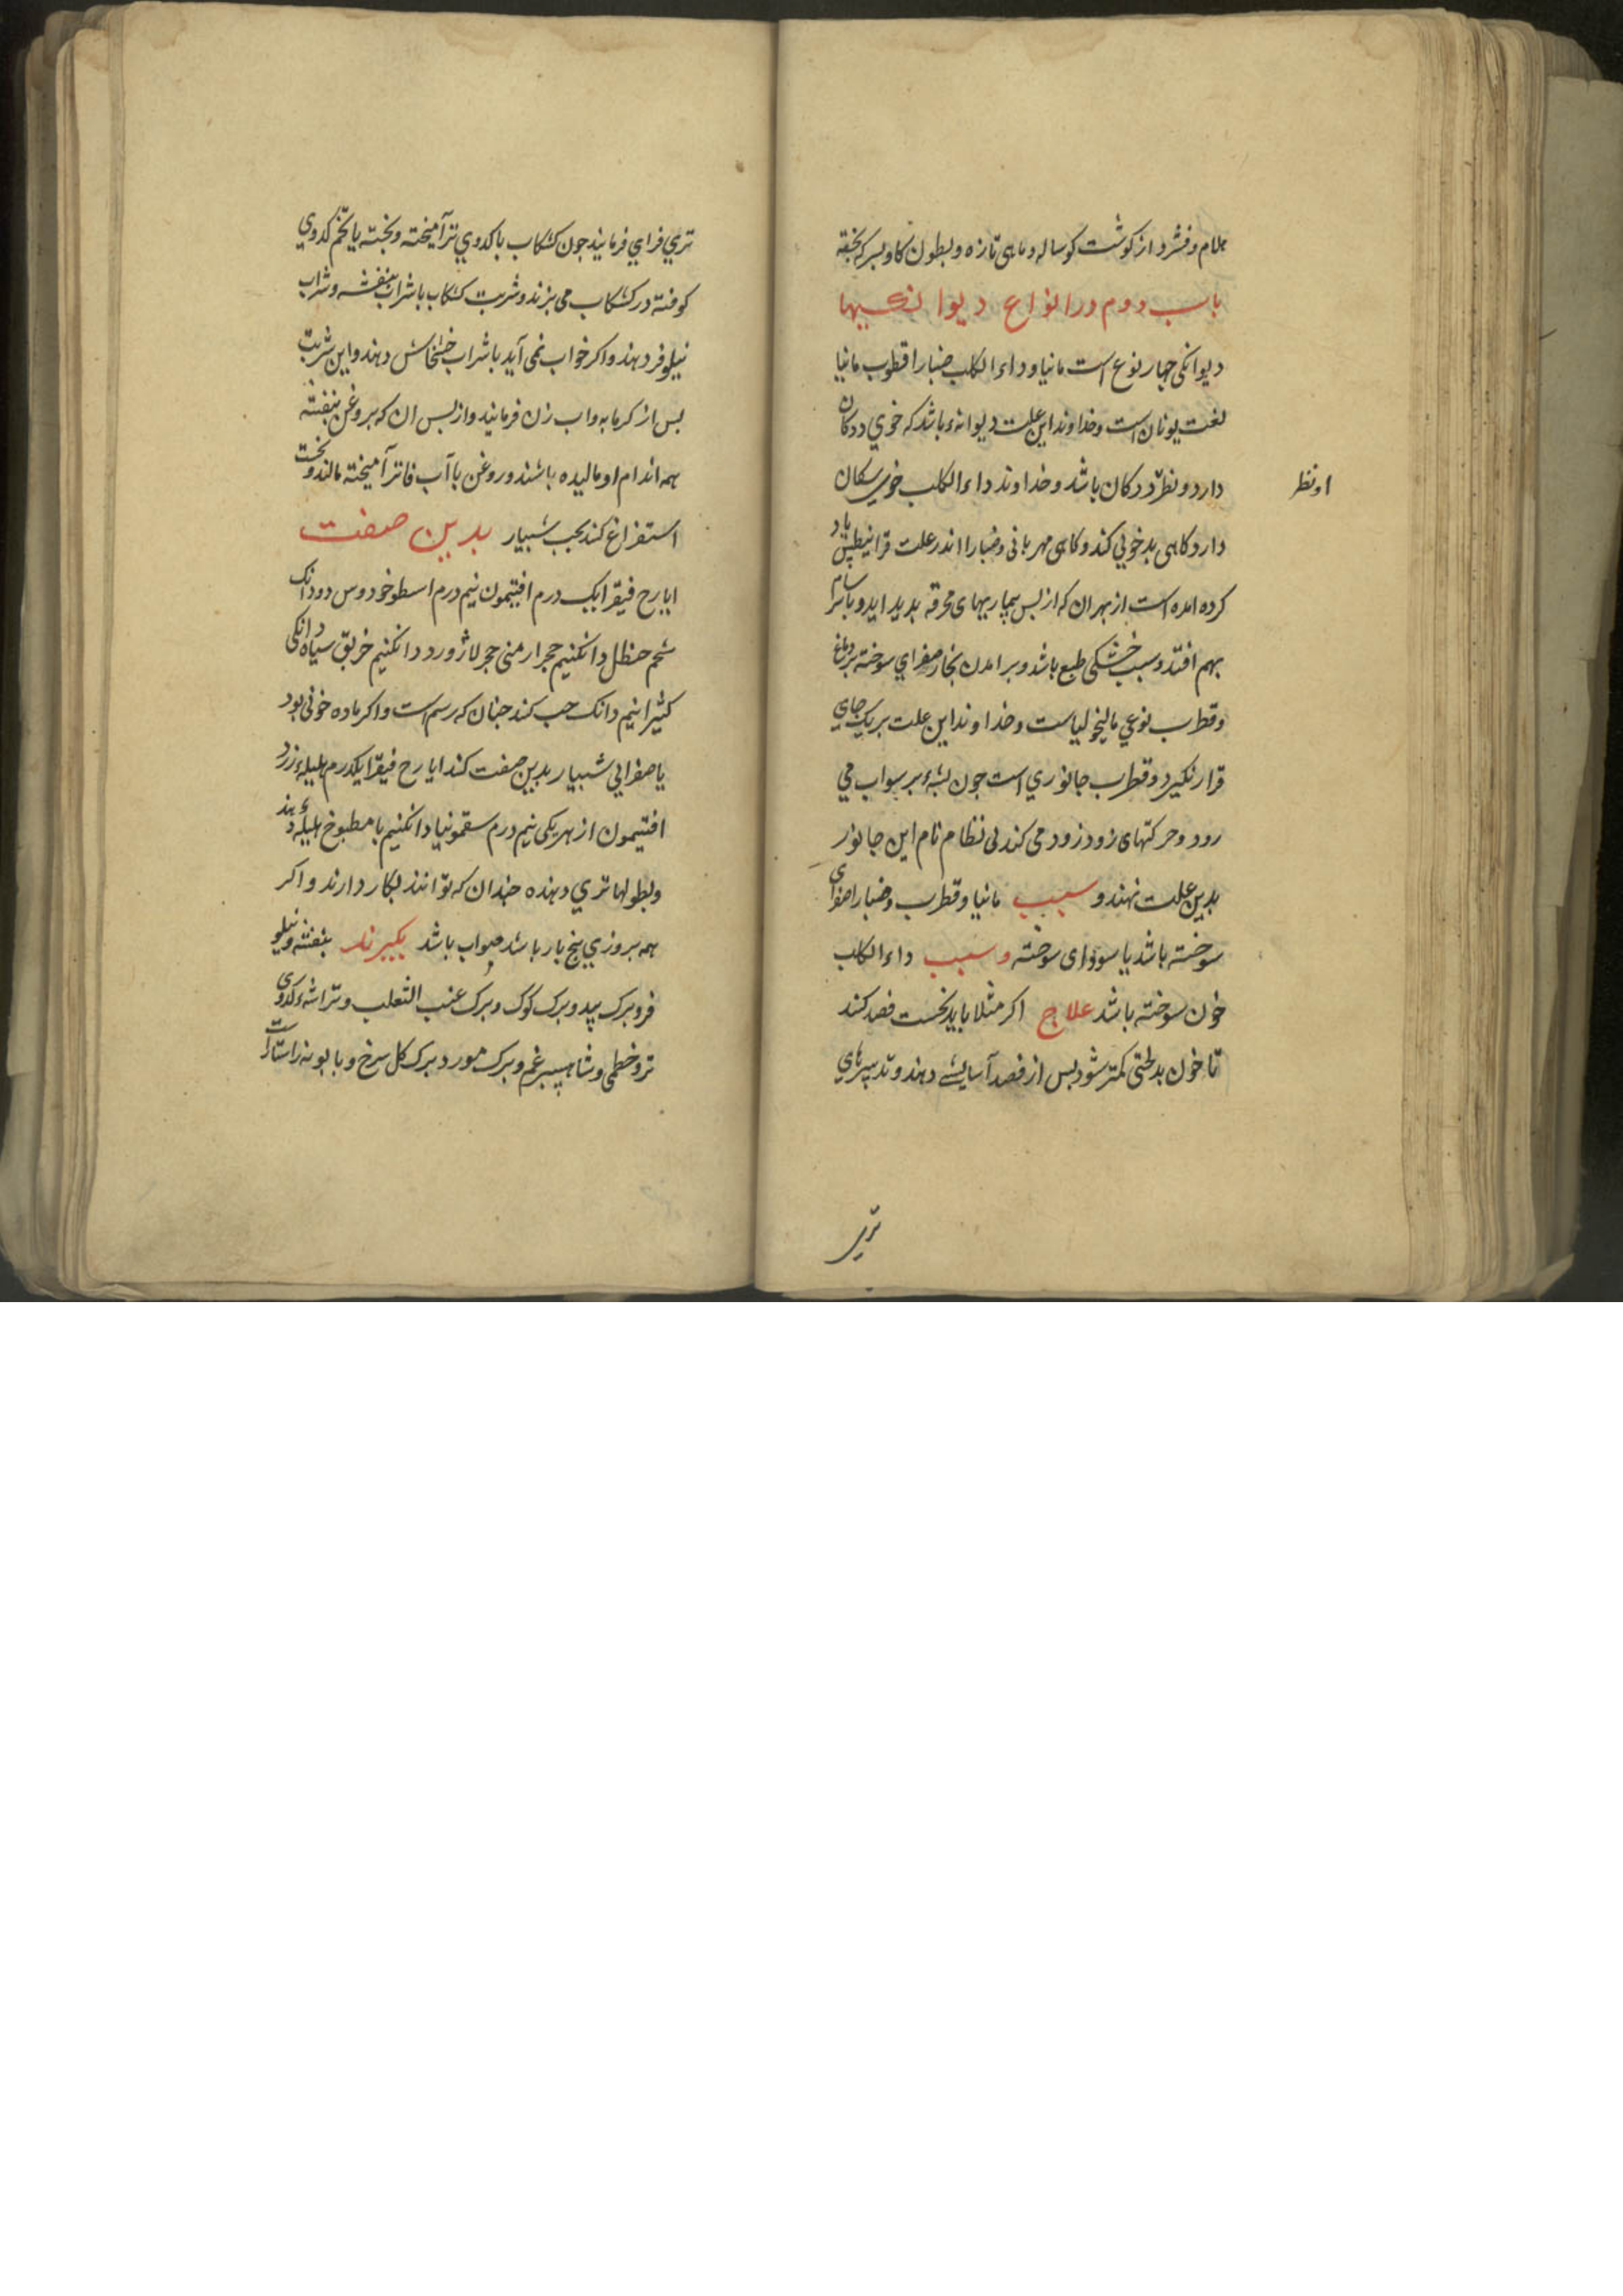 هلام و فشرد از کوشت کوساله و ماهی تازه و بطون کاو بسرکه بخته
باب دوم در انواع دیوانکیها
دیوانکی جهار نوع است مانیا و داءالکلب ضبارا قطرب مانیا
لغت یونان است و خداوند این علت دیوانهٔ باشد که خوی ددکان
دارد و نظر ددکان باشد و خداوند داءالکلب خوی سکان
او نظر
دارد کاهی بدخویی کند و کاهی مهربانی و ضبارا اندر علت قرانیطس یاد
کرده امده است از بهر ان که از بس بیماریهای محرقه بدید اید و با سرسام
بهم افتد و سبب خشکی طبع باشد و بر امدن بخار صفرای سوخته بر دماغ
و قطرب نوعی مالیخولیاست و خداوند این علت بر یک جای
قرار نکیرد و قطرب جانوری است جون بشهٔ بر سر اب می
رود و حرکتهای زود زود می کند بی نظام نام این جانور
بدین علت نهند و سبب مانیا و قطرب و ضبارا صفرای
سوخته باشد یا سودای سوخته و سبب داءالکلب
خون سوخته باشد علاج اکر مثلا باید نخست فصد کند
تا خون بد لختی کمتر شود بس از فصد آسایش دهند و تدبیرهای
تری
تری فزای فرمایند جون کشکاب با کدوی تر آمیخته و بخته یا تخم کدوی
کوفته در کشکاب می بزند و شربت کشکاب با شراب بنفشه و شراب
نیلوفر دهند و اکر خواب نمی آید با شراب خشخاش دهند و این شربت
بس از کرمابه و اب زن فرمایند و از بس ان که بروغن بنفشه
همه اندام او مالیده باشند و روغن با آب فاتر آمیخته مالند و نخست
استفراغ کند بحب شبیار بدین صفت
ایارج فیقرا یک درم افتیمون نیم درم اسطوخودوس دو دانک
شحم حنظل دانکنیم حجر ارمنی حجر لاژورد دانکنیم خربق سیاه دانکی
کثیرا نیم دانک حب کند جنان که رسم است و اکر ماده خونی بود
یا صفرایی شبیار بدین صفت کند ایارج فیقرا یکدرم هلیلهٔ زرد
افتیمون از هر یکی نیم درم سقمونیا دانکنیم با مطبوخ هلیله دهند
و بطولها تری دهنده جندان که توانند بکار دارند و اکر
همه بروزی بنج بار باشد صواب باشد بکیرند بنفشه و نیلو
فر و برک بید و برک کوک و برک عنب الثعلب و تراشهٔ کدوی
تر و خطمی و شاهسبرغم و برک مورد و برک کل سرخ و بابونه راستاراست